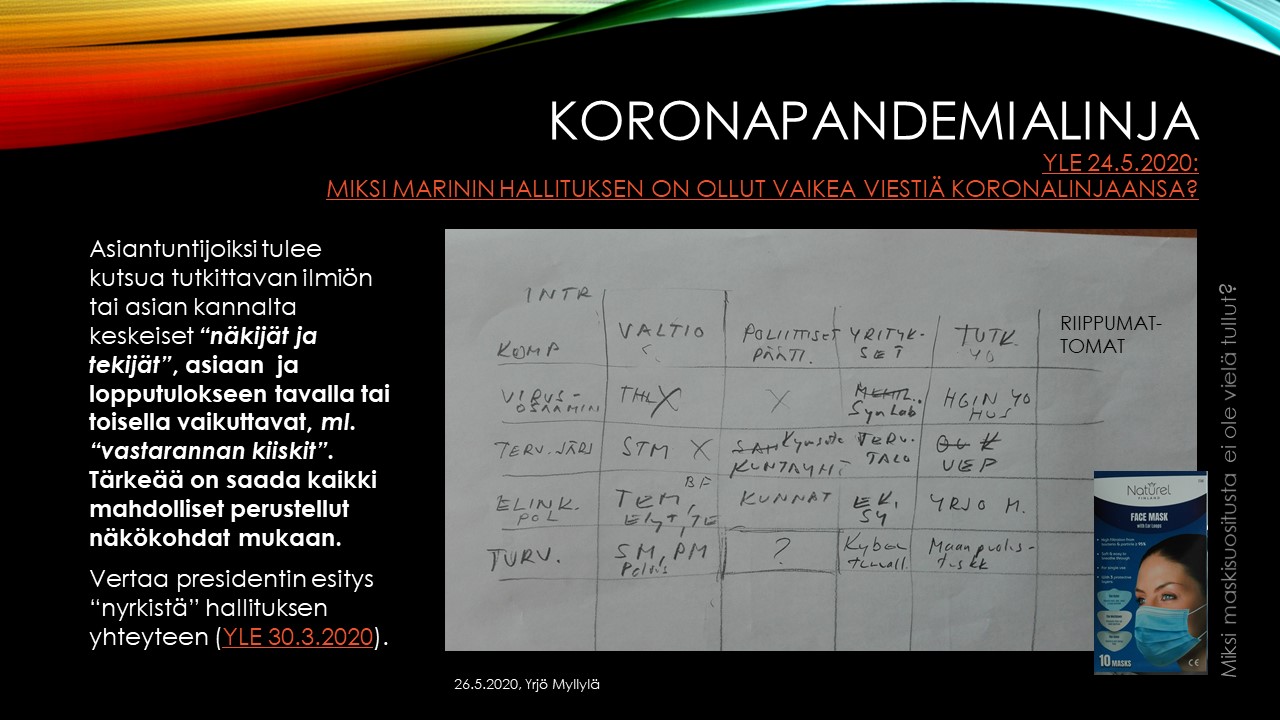 KORONAPANDEMIALINJA
YLE 24.5.2020:
MIKSI MARININ HALLITUKSEN ON OLLUT VAIKEA VIESTIÄ KORONALINJAANSA?
Asiantuntijoiksi tulee
kutsua tutkittavan ilmiön
tai asian kannalta
keskeiset “näkijät ja
tekijät”, asiaan ja
lopputulokseen tavalla tai
toisella vaikuttavat, ml.
“vastarannan kiiskit”.
Tärkeää on saada kaikki
mahdolliset perustellut
näkökohdat mukaan.
Vertaa presidentin esitys
“nyrkistä” hallituksen
yhteyteen (YLE 30.3.2020).
INTR
KOMP
VALTIO
POLIITTISET
PÄÄTT.
YRITYK-
SET
TUTK.
YO
RIIPPUMAT-
TOMAT
VIRUS-
OSAAMIN
THL X
X
SynLab
HGIN YO
HUS
TERV.JÄRJ
STM X
Kymsote
KUNTAYHT
TERV.
TALO
UEF
ELINK.
POL
BF
TEM,
ELYT, TE
KUNNAT
EK,
SY
YRJO M.
TURV.
SM, PM
Poliisi
?
Kyber
turvall.
Maanpuolus-
tuskk
Naturel
FINLAND
FACE MASK
with Ear Loops
10 MASKS
CE
Miksi maskisuositusta ei ole vielä tullut?
26.5.2020, Yrjö Myllylä